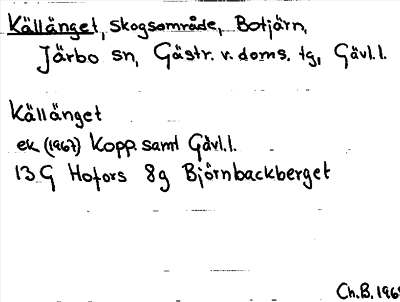 Källänget, skogsområde, Botjärn,
Järbo sn, Gästr. v. doms. tg, Gävl. l.
Källänget
ek (1967) Kopp. samt Gävl. l.
13 G Hofors 8g Björnbackberget
Ch. B. 196